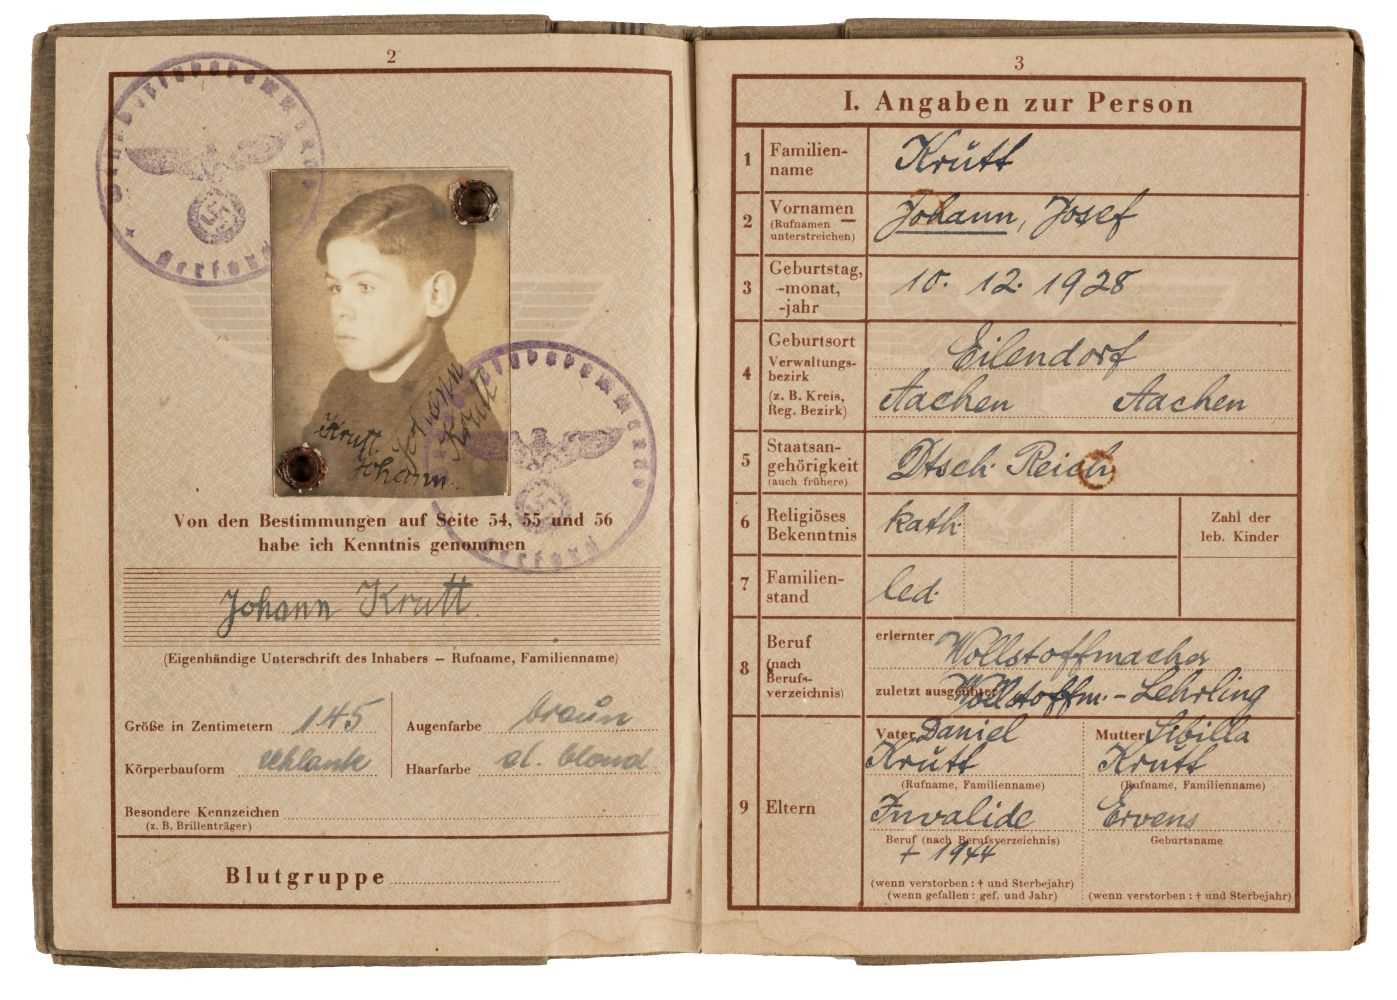 2
Krutt. Johann
Johann. Krutt
Von den Bestimmungen auf Seite 54, 55 und 56
habe ich Kenntnis genommen
Johann Krutt.
(Eigenhändige Unterschrift des Inhabers – Rufname, Familienname)
Größe in Zentimetern 145 Augenfarbe braun
Körperbauform schlank Haarfarbe dl. blond
Besondere Kennzeichen
(z. B. Brillenträger)
Blutgruppe
3
I. Angaben zur Person
1 Familien-
name
Krutt
2 Vornamen
(Rufnamen
unterstreichen)
Johann, Josef
3 Geburtstag,
-monat,
-jahr
10. 12. 1928
4 Geburtsort
Verwaltungs-
bezirk
(z. B. Kreis,
Reg. Bezirk)
Eilendorf
Aachen Aachen
5 Staatsan-
gehörigkeit
(auch frühere)
Dtsch. Reich
6 Religiöses
Bekenntnis
kath.
Zahl der
leb. Kinder
7 Familien-
stand
led.
8 Beruf
(nach
Berufs-
verzeichnis)
erlernter Wollstoffmacher
zuletzt ausgeübter Wollstoffm.-Lehrling
9 Eltern
Vater Daniel
Krutt
(Rufname, Familienname)
Invalide
Beruf (nach Berufsverzeichnis)
† 1944
(wenn verstorben: † und Sterbejahr)
(wenn gefallen: gef. und Jahr)
Mutter Sibilla
Krutt
(Rufname, Familienname)
Ervens
Geburtsname
(wenn verstorben: † und Sterbejahr)